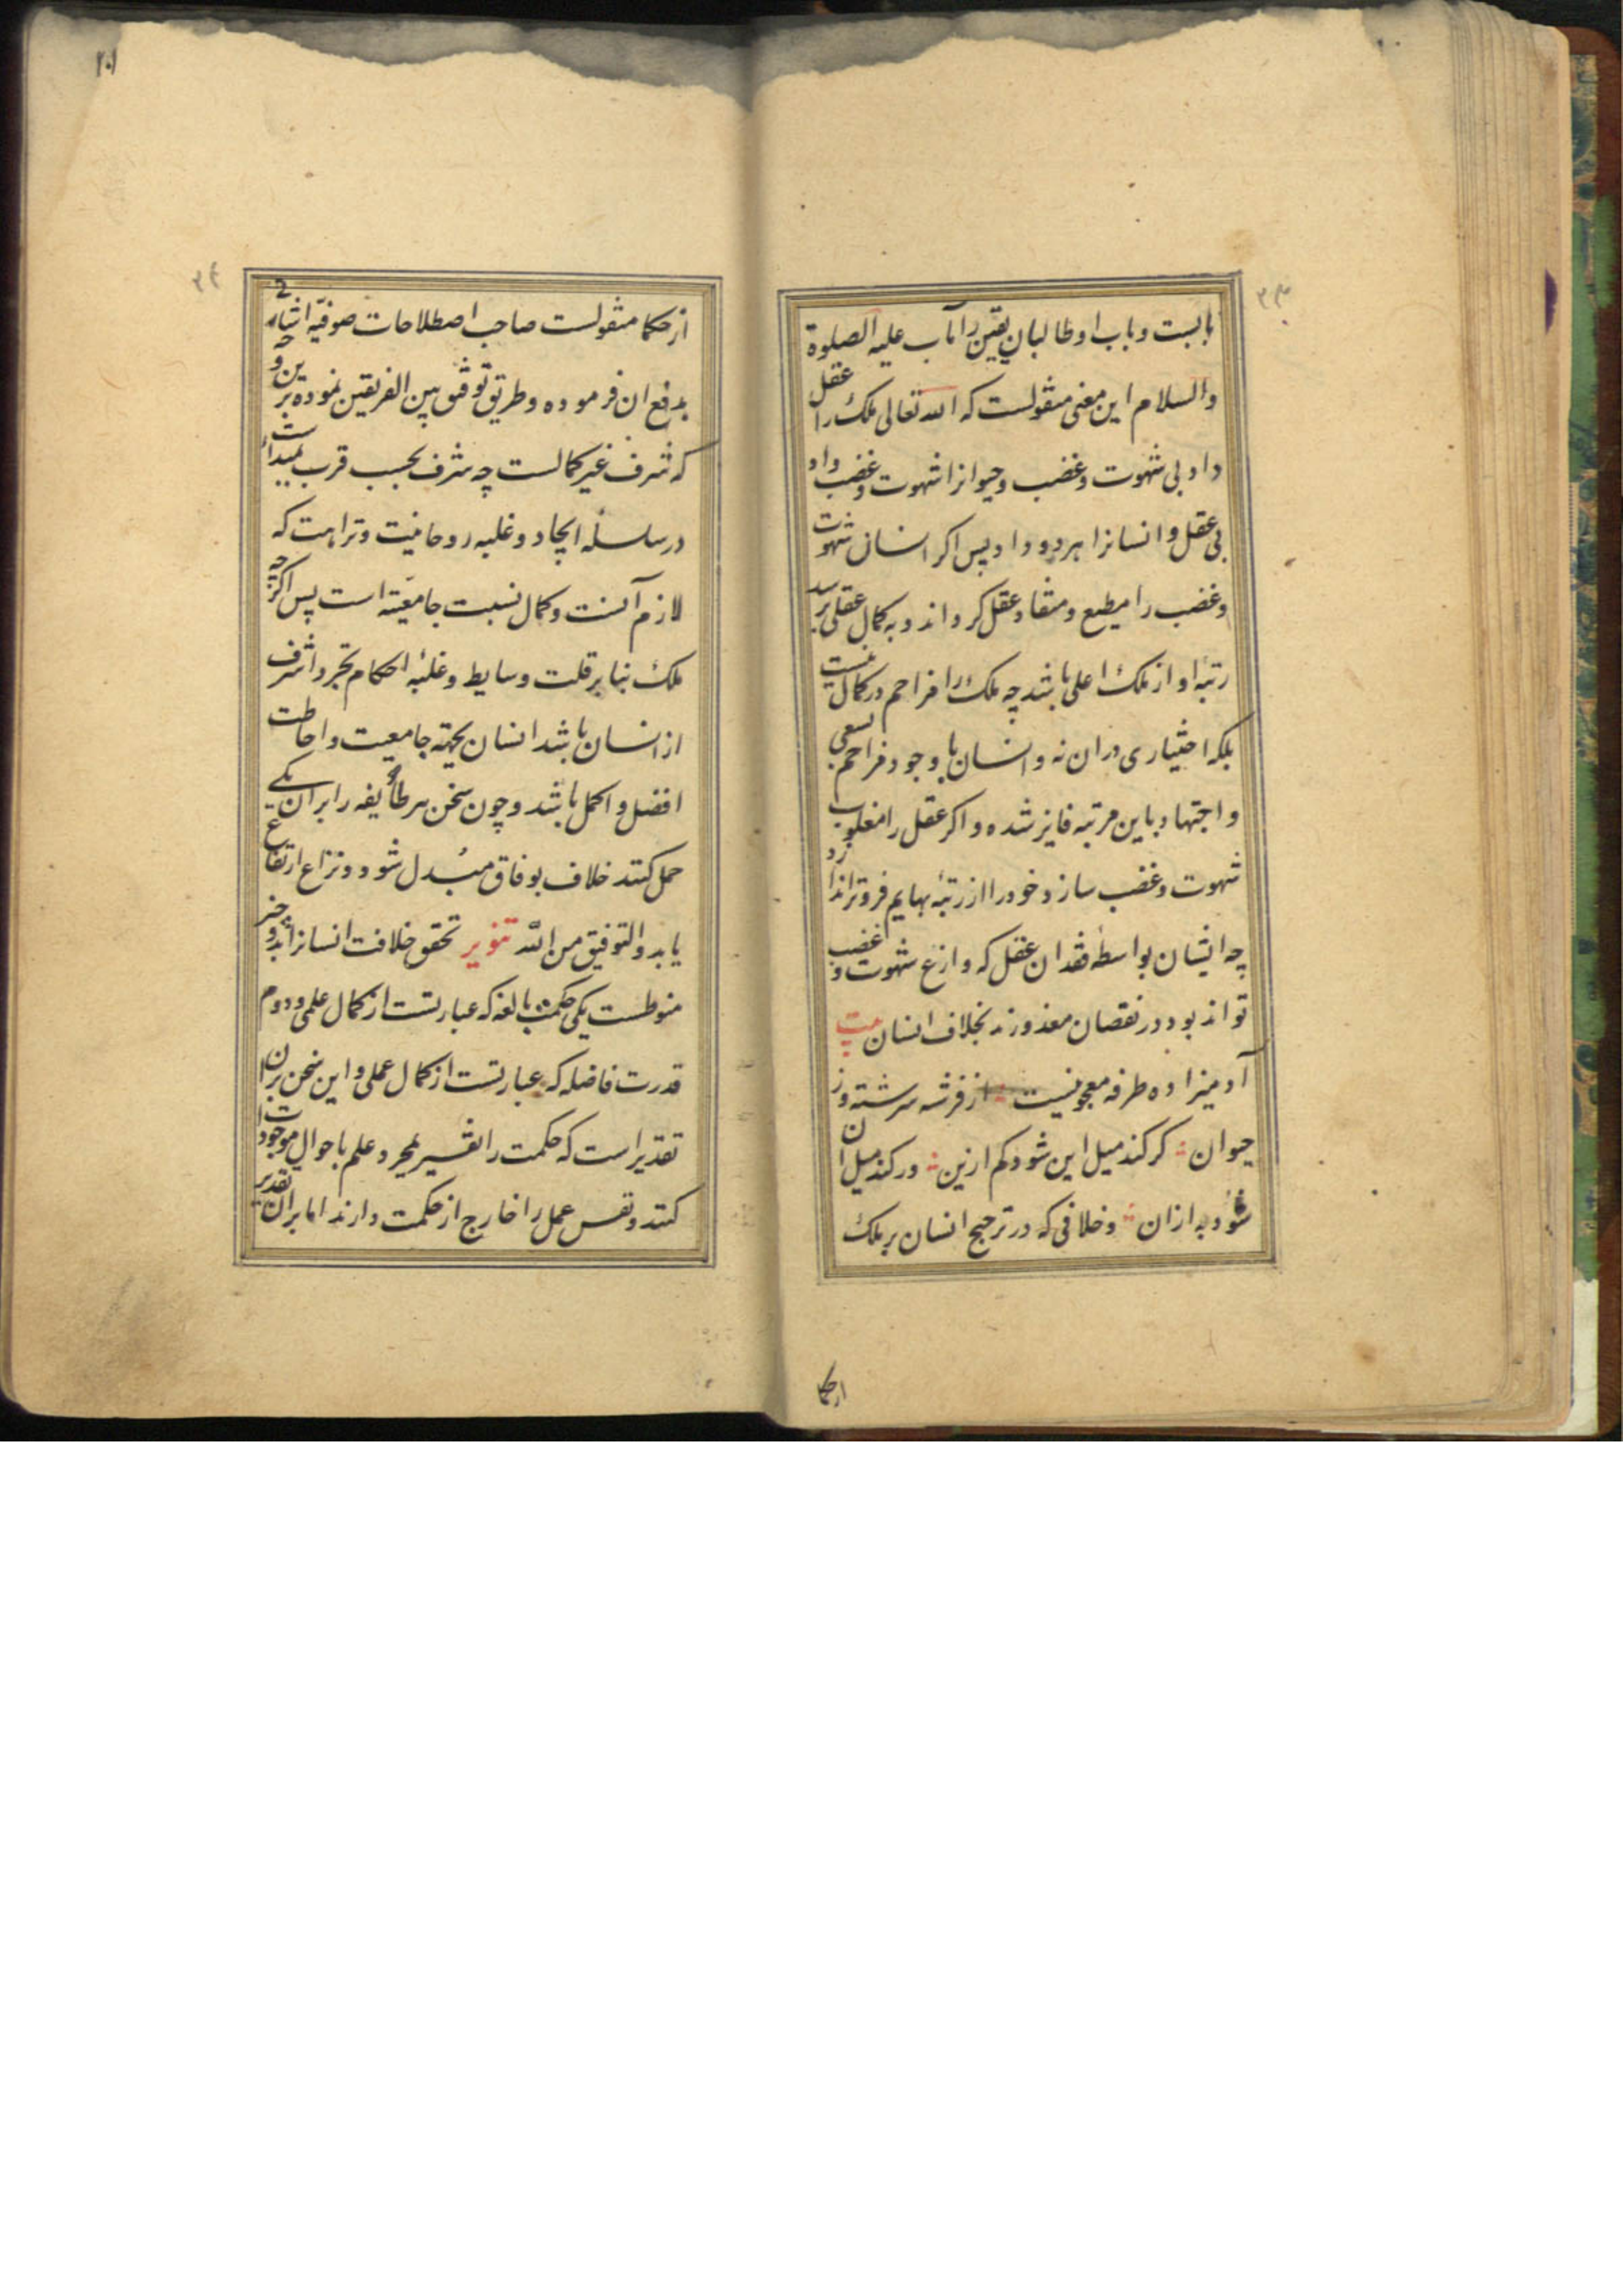 بابست و باب او طالبان یقین را مآب علیه الصلوة
والسلام این معنی منقولست که الله تعالی ملک را عقل
داد بی شهوت و غضب و حیوانرا شهوت و غضب داد
بی عقل و انسانرا هر دو داد پس اگر انسان شهوت
و غضب را مطیع و منقاد عقل کرداند و به کمال عقلی برسد
رتبهٔ او از ملک اعلی باشد چه ملک را مزاحم در کمال نیست
بلکه اختیاری در ان نه و انسان با وجود مزاحم بسعی
و اجتهاد باین مرتبه فایز شده و اکر عقل را مغلوب
شهوت و غضب سازد خود را از رتبهٔ بهایم فروتر اندازد
چه ایشان بواسطهٔ فقدان عقل که وازع شهوت و غضب
تواند بود در نقصان معذورند بخلاف انسان بیت
آدمیزاده طرفه معجونیست از فرشته سرشته وز
حیوان کر کند میل این شود کم ازین ور کند میل ان
شود به ازان و خلافی که در ترجیح انسان بر ملک
از حکما
از حکما منقولست صاحب اصطلاحات صوفیه اشارح
بدفع ان فرموده و طریق توفیق بین الفریقین نموده برین وجه
که شرف غیر کمالست چه شرف بحسب قرب بمبدأست
در سلسلهٔ ایجاد و غلبه روحانیت و نزاهت که
لازم آنست و کمال نسبت جامعیته است پس اکرچه
ملک بنا بر قلت وسایط و غلبهٔ احکام تجرد اشرف
از انسان باشد انسان بجهته جامعیت و احاطت
افضل و اکمل باشد و چون سخن هر طایفه را بر ان یکی
حمل کنند خلاف بوفاق مبدل شود و نزاع ارتفاع
یابد و التوفیق من الله تنویر تحقق خلافت انسانرا بدو چیز
منوطست یکی حکمت بالغه که عبارتست از کمال علمی و دوم
قدرت فاضله که عبارتست از کمال عملی و این سخن بران
تقدیر است که حکمت را تفسیر بمجرد علم باحوال موجودات
کنند و نفس عمل را خارج از حکمت دارند اما بران تقدیر